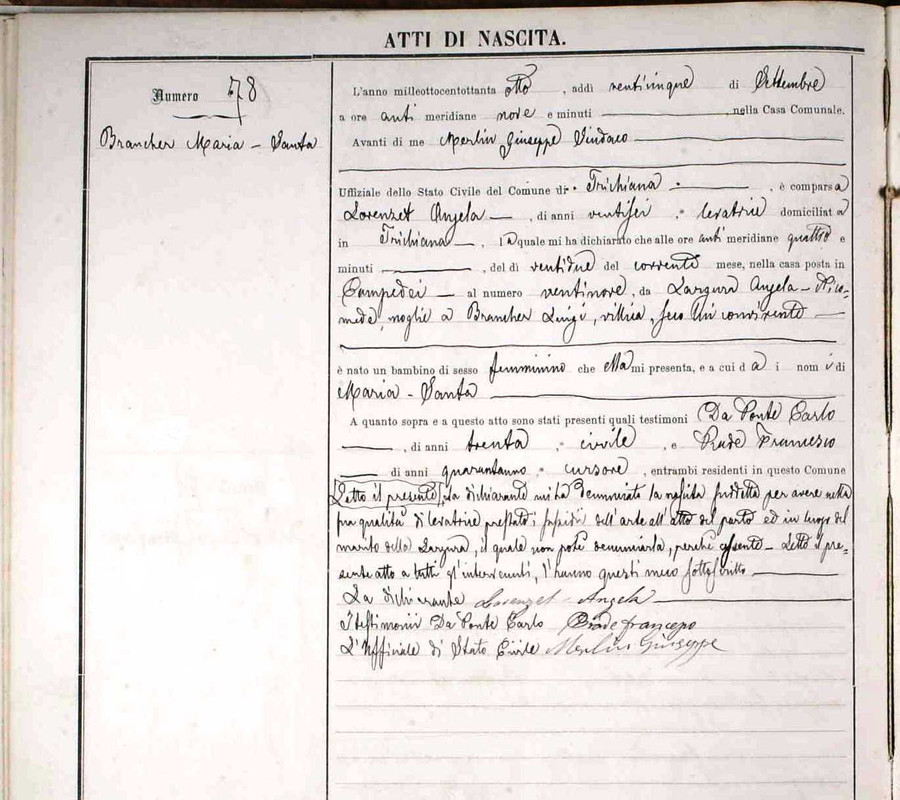 ATTI DI NASCITA.
Numero 78
Brancher Maria - Santa
L'anno milleottocentottanta otto, addì venticinque di Settembre
a ore anti meridiane nove e minuti, nella Casa Comunale.
Avanti di me Merlin Giuseppe Sindaco
Uffiziale dello Stato Civile del Comune di Trichiana, è comparsa
Lorenzet Angela, di anni ventisei, levatrice domiciliata
in Trichiana, la quale mi ha dichiarato che alle ore anti meridiane quattro e
minuti, del dì ventidue del corrente mese, nella casa posta in
Campedei al numero ventinove, da Largura Angela - Nico=
meda, moglie a Brancher Luigi, villica, seco lui convivente
è nato un bambino di sesso femminino che ella mi presenta, e a cui dà i nomi di
Maria - Santa
A quanto sopra e a questo atto sono stati presenti quali testimoni Da Ponte Carlo
, di anni trenta, civile, e Prade Francesco
di anni quarantanno, cursore, entrambi residenti in questo Comune
Letto il presente, la dichiarante mi ha denunciato la nascita suddetta per avere nella
sua qualità di levatrice prestato i sussidi dell'arte all'atto del parto ed in luogo del
marito della Largura, il quale non potè denunciarla, perchè assente - Letto il pre=
sente atto a tutti gl'intervenuti, l'hanno questi meco sottoscritto
La dichiarante Lorenzet Angela
I testimonii Da Ponte Carlo Prade francesco
L'Uffiziale di Stato Civile Merlin Giuseppe